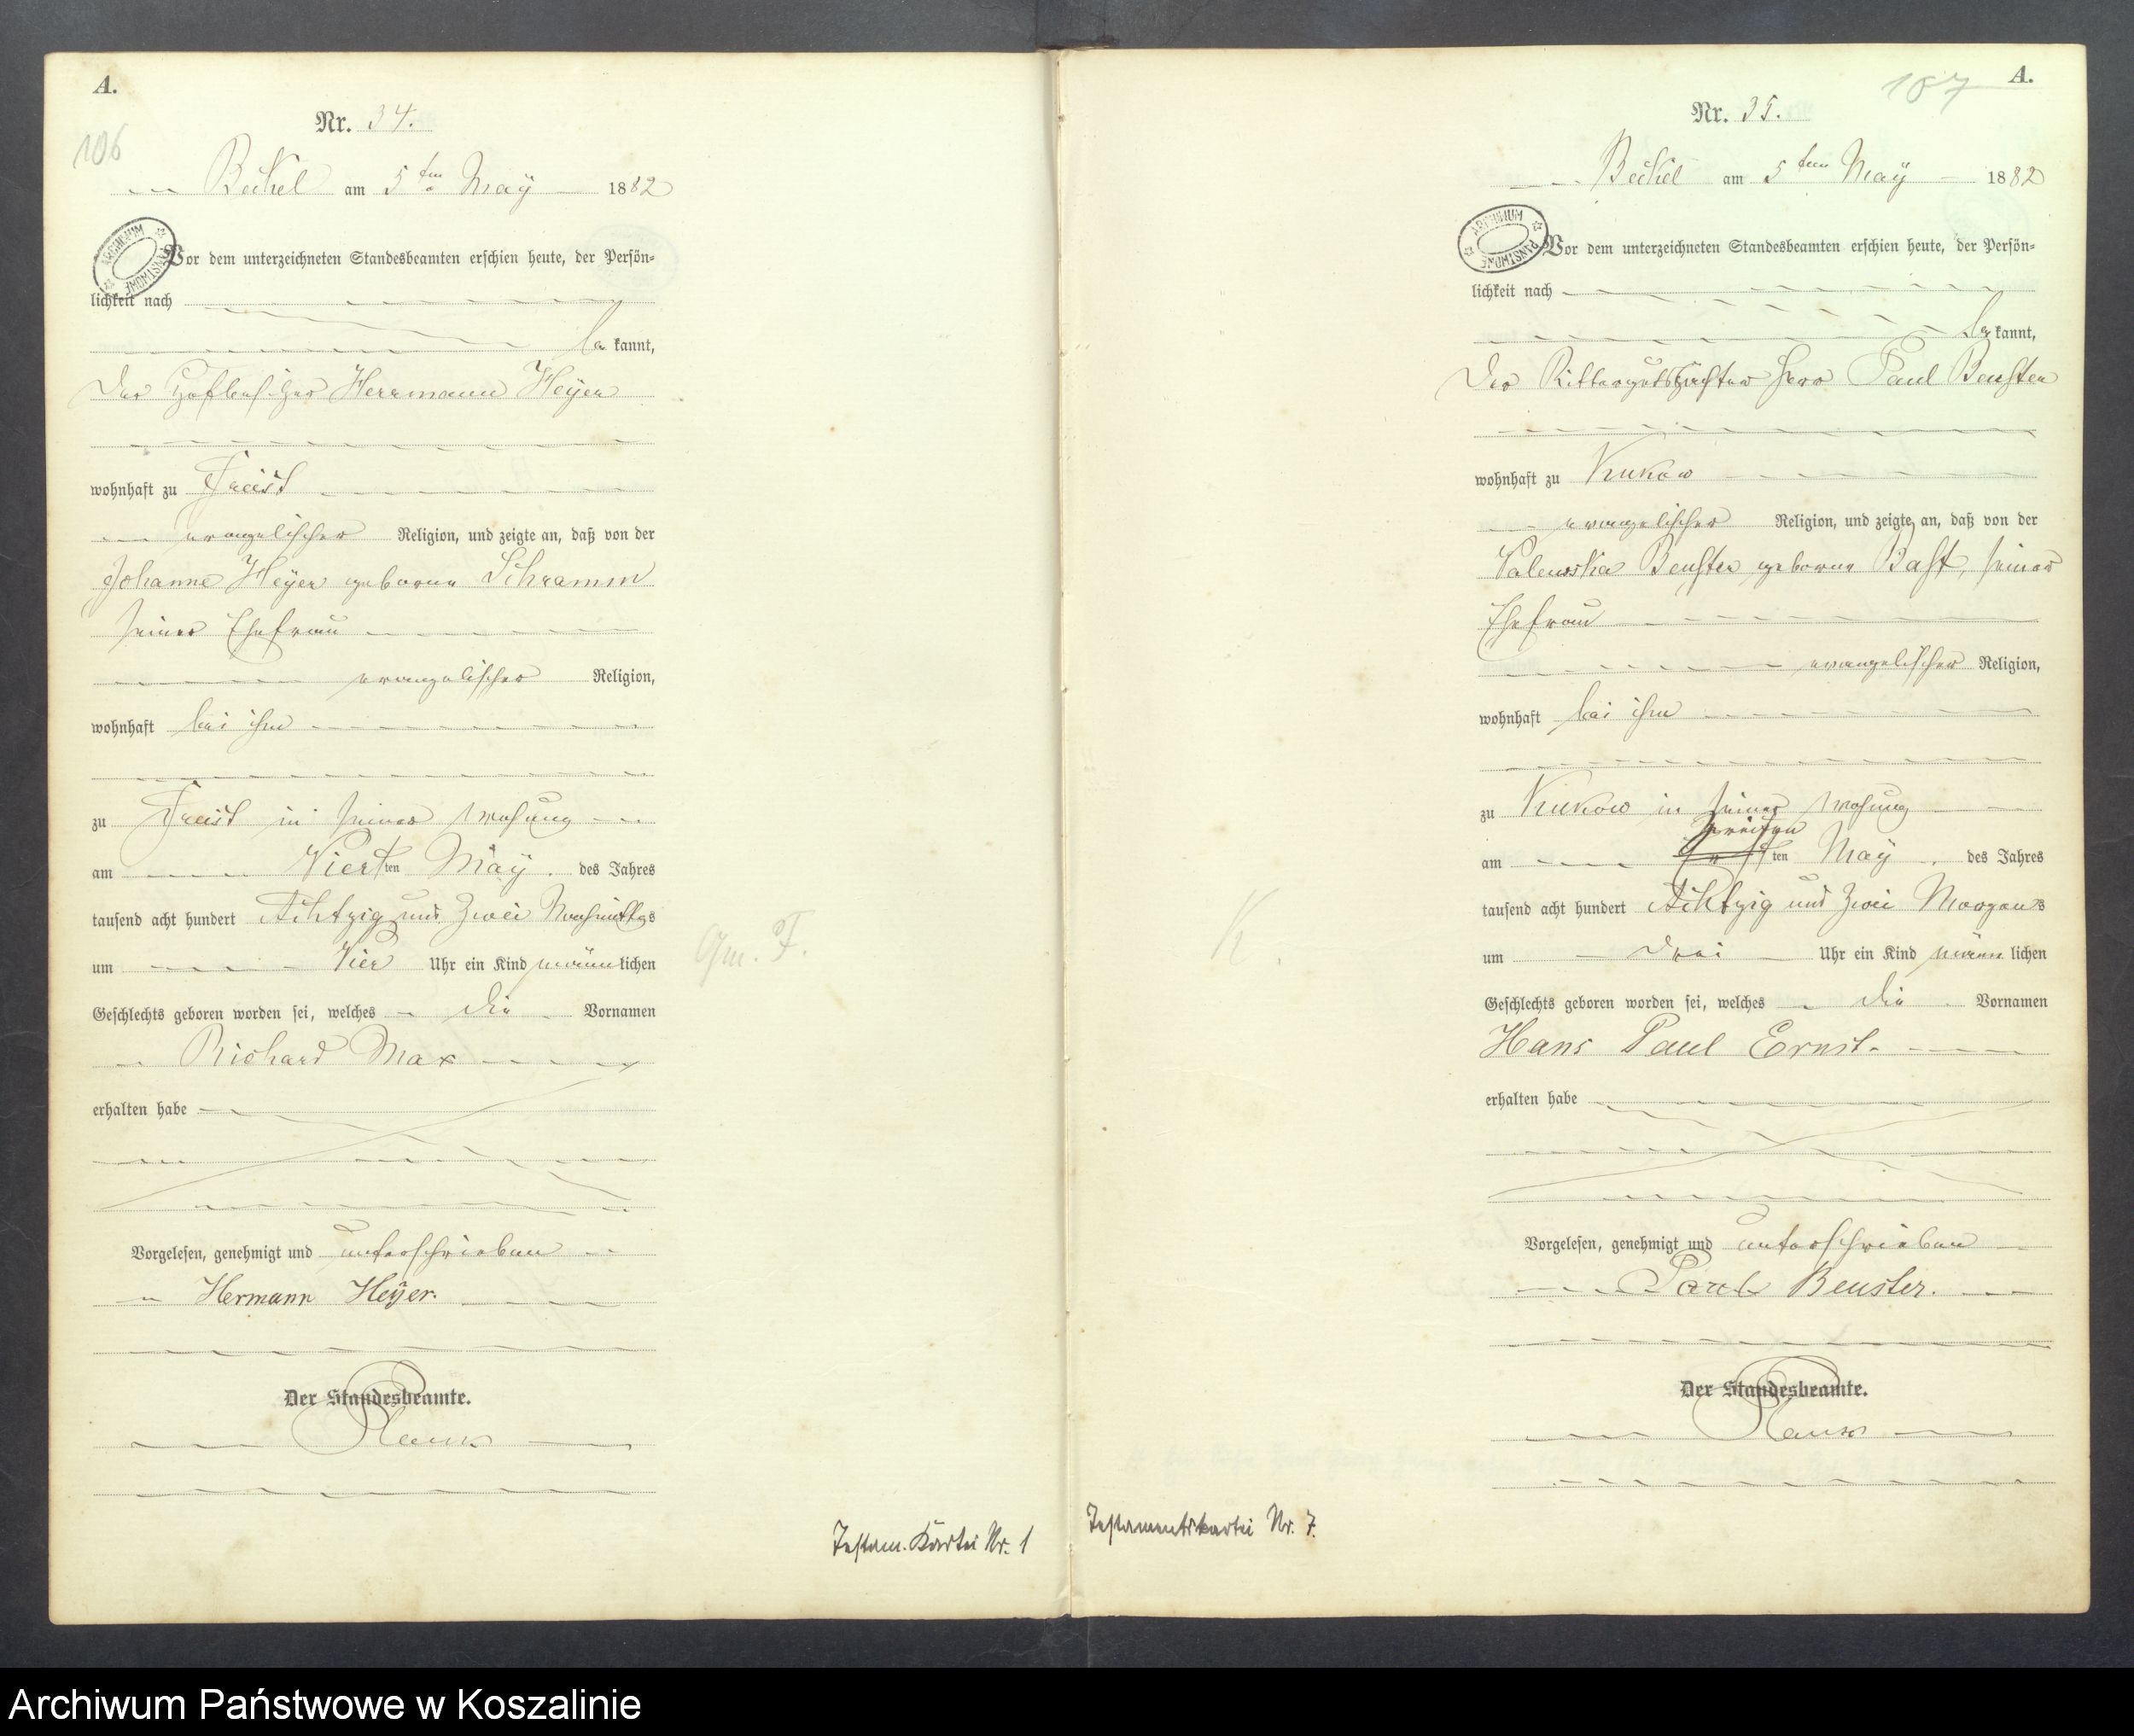 A.
Nr. 34.
106
Beckel am 5ten May 1882
ARCHIWUM PAŃSTWOWE
Vor dem unterzeichneten Standesbeamten erschien heute, der Persön-
lichkeit nach
be kannt,
Der Hofbesitzer Herrmann Heyer
wohnhaft zu Freist
evangelischer Religion, und zeigte an, daß von der
Johanne Heyer geborne Schramm
seiner Ehefrau
evangelischer Religion,
wohnhaft bei ihm
zu Freist in seiner Wohnung
am Vierten May. des Jahres
tausend acht hundert Achtzig und Zwei Nachmittags
um Vier Uhr ein Kind männlichen
Geschlechts geboren worden sei, welches die Vornamen
Richard Max
erhalten habe
Vorgelesen, genehmigt und unterschrieben
Hermann Heyer.
Der Standesbeamte.
Gm. F.
Testam. Kartei Nr. 1
A.
107
Nr. 35.
Beckel am 5ten May 1882
ARCHIWUM PAŃSTWOWE
Vor dem unterzeichneten Standesbeamten erschien heute, der Persön-
lichkeit nach
be kannt,
Der Rittergutspächter Herr Paul Beuster
wohnhaft zu Kukow
evangelischer Religion, und zeigte an, daß von der
Valewska Beuster geborne Bast, seiner
Ehefrau
evangelischer Religion,
wohnhaft bei ihm
zu Kukow in seiner Wohnung
zweiten
am ten May. des Jahres
tausend acht hundert Achtzig und Zwei Morgens
um Drei Uhr ein Kind männ lichen
Geschlechts geboren worden sei, welches die Vornamen
Hans Paul Ernst.
erhalten habe
Vorgelesen, genehmigt und unterschrieben
Paul Beuster.
Der Standesbeamte.
K.
Testamentskartei Nr. 7.
Archiwum Państwowe w Koszalinie